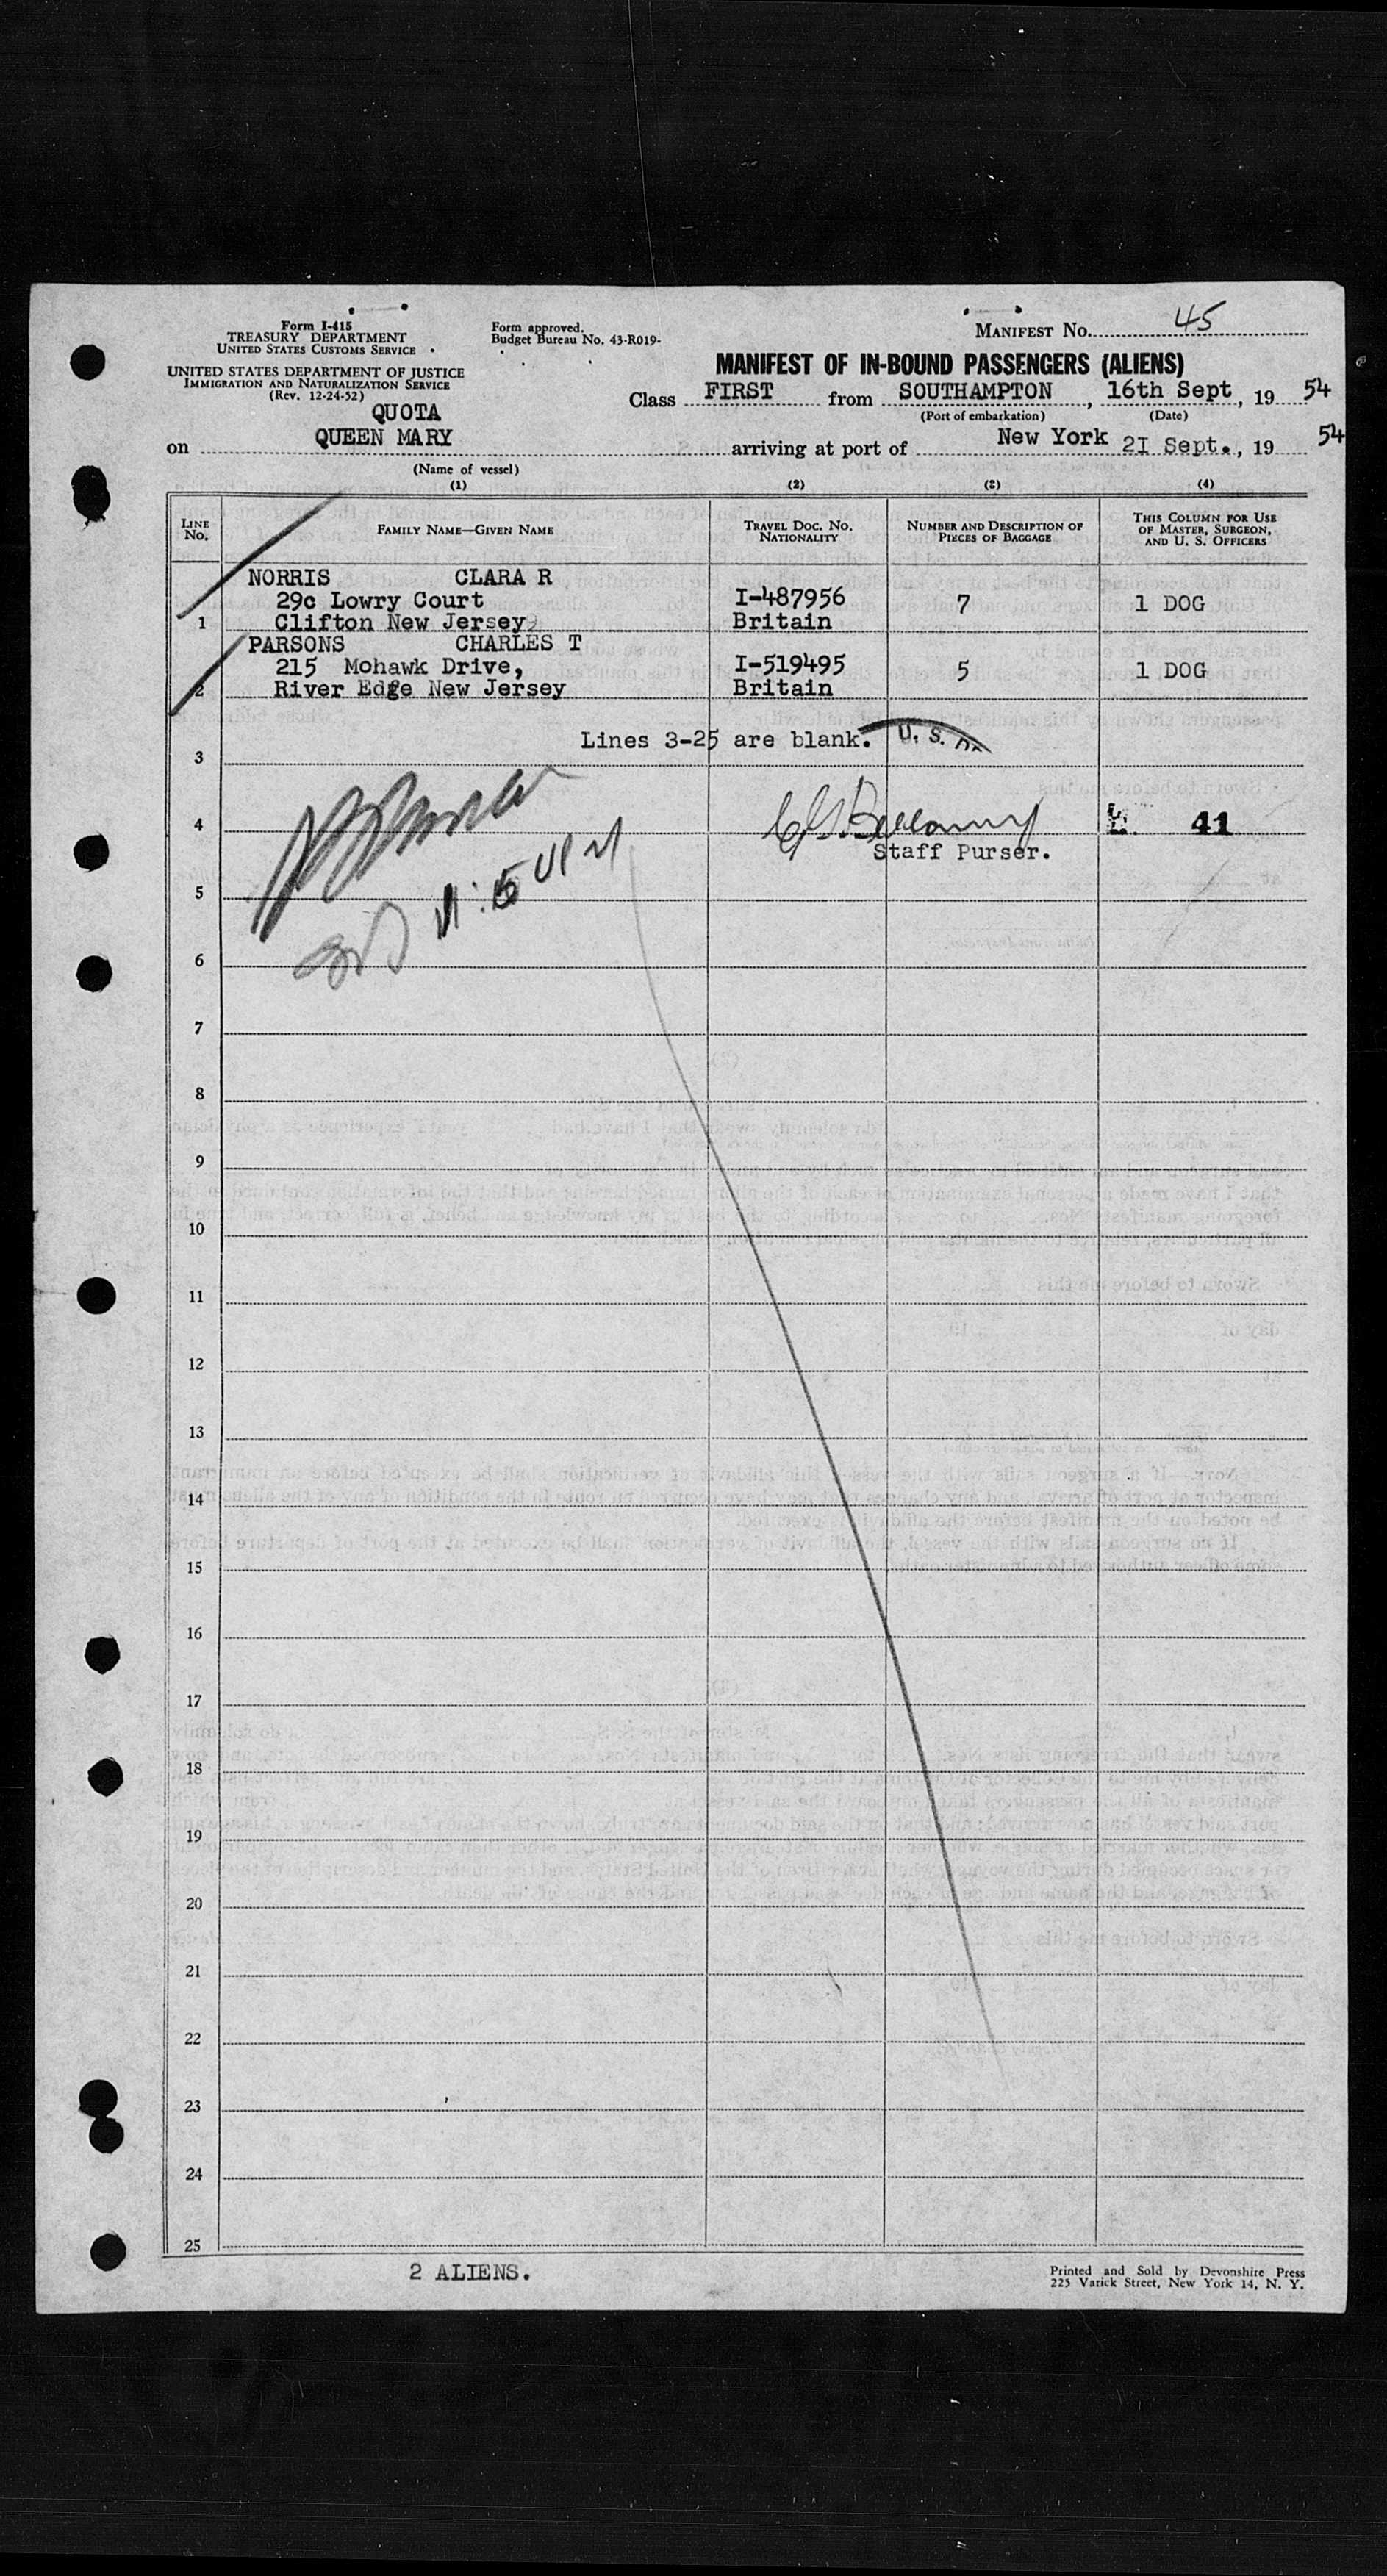 Form I-415
TREASURY DEPARTMENT
UNITED STATES CUSTOMS SERVICE
UNITED STATES DEPARTMENT OF JUSTICE
IMMIGRATION AND NATURALIZATION SERVICE
(Rev. 12-24-52)
Form approved.
Budget Bureau No. 43-R019-
MANIFEST NO. 45
MANIFEST OF IN-BOUND PASSENGERS (ALIENS)
Class FIRST from SOUTHAMPTON, 16th Sept, 19 54
(Port of embarkation) (Date)
QUOTA
on QUEEN MARY arriving at port of New York 21 Sept., 19 54
(Name of vessel)
(1) (2) (3) (4)
LINE NO. FAMILY NAME—GIVEN NAME TRAVEL DOC. NO. NATIONALITY NUMBER AND DESCRIPTION OF PIECES OF BAGGAGE THIS COLUMN FOR USE OF MASTER, SURGEON, AND U. S. OFFICERS
NORRIS CLARA R
29c Lowry Court I-487956 7 1 DOG
1 Clifton New Jersey Britain
PARSONS CHARLES T
215 Mohawk Drive, I-519495 5 1 DOG
2 River Edge New Jersey Britain
Lines 3-25 are blank. U. S.
3
4 41
Staff Purser.
5
6
7
8
9
10
11
12
13
14
15
16
17
18
19
20
21
22
23
24
25
2 ALIENS.
Printed and Sold by Devonshire Press
225 Varick Street, New York 14, N. Y.